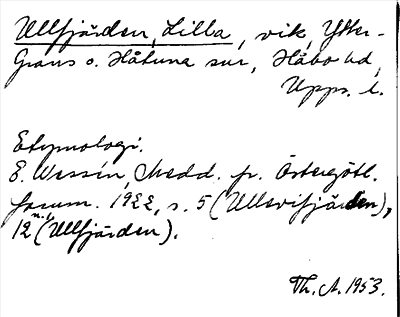 Ullfjärden, Lilla, vik, Ytter-
Grans o. Håtuna snr, Håbo hd,
Upps. l.
Etymologi.
E. Wessén, Medd. fr. Östergötl.
fornm. 1922, s. 5 (Ullevifjärden),
12 (Ullfjärden).
Th. A. 1953.